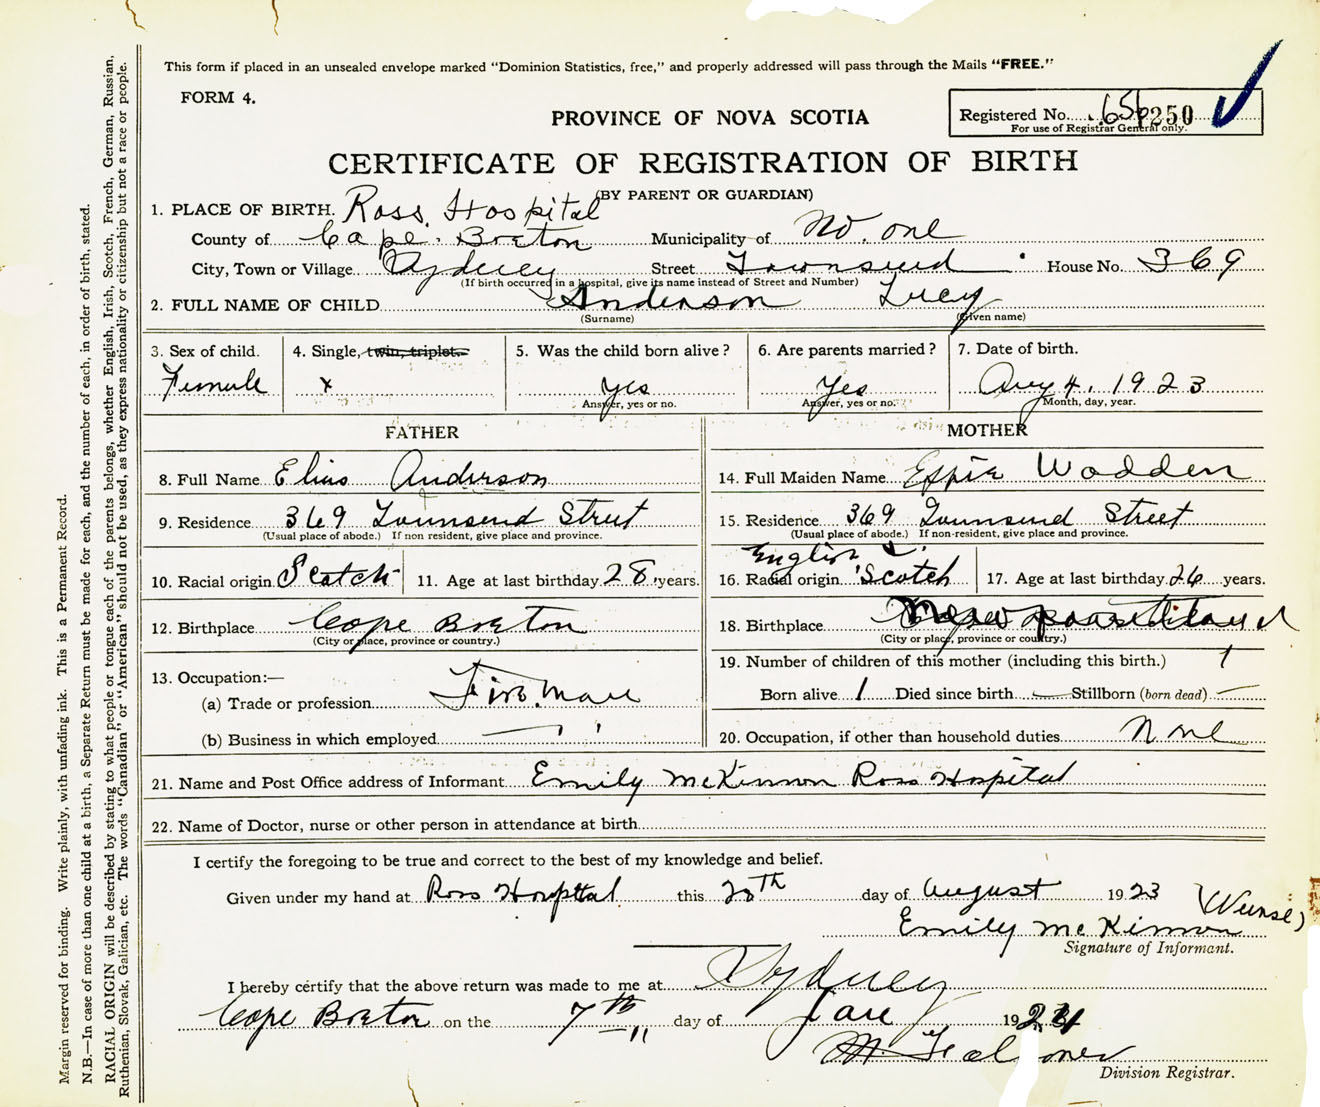 This form if placed in an unsealed envelope marked "Dominion Statistics, free," and properly addressed will pass through the Mails "FREE."
FORM 4.
PROVINCE OF NOVA SCOTIA
Registered No. 250
For use of Registrar General only.
CERTIFICATE OF REGISTRATION OF BIRTH
(BY PARENT OR GUARDIAN)
1. PLACE OF BIRTH. Ross Hospital
County of Cape Breton Municipality of No. one
City, Town or Village Sydney Street Townsend House No. 369
(If birth occurred in a hospital, give its name instead of Street and Number)
2. FULL NAME OF CHILD Anderson Lucy
(Surname) (Given name)
3. Sex of child. 4. Single, twin, triplet. 5. Was the child born alive? 6. Are parents married? 7. Date of birth.
Female x yes Yes Aug 4, 1923
Answer, yes or no. Answer, yes or no. Month, day, year.
FATHER MOTHER
8. Full Name Elias Anderson
9. Residence 369 Townsend Street
(Usual place of abode.) If non resident, give place and province.
10. Racial origin Scotch 11. Age at last birthday 28 years.
12. Birthplace Cape Breton
(City or place, province or country.)
13. Occupation:—
(a) Trade or profession Fireman
(b) Business in which employed
14. Full Maiden Name Effie Wadden
15. Residence 369 Townsend Street
(Usual place of abode.) If non-resident, give place and province.
English &
16. Racial origin Scotch 17. Age at last birthday 26 years.
18. Birthplace
(City or place, province or country.)
19. Number of children of this mother (including this birth.) 1
Born alive 1 Died since birth — Stillborn (born dead) —
20. Occupation, if other than household duties None
21. Name and Post Office address of Informant Emily McKinnon Ross Hospital
22. Name of Doctor, nurse or other person in attendance at birth
I certify the foregoing to be true and correct to the best of my knowledge and belief.
Given under my hand at Ross Hospital this 20th day of August 1923
Emily McKinnon (Nurse)
Signature of Informant.
I hereby certify that the above return was made to me at Sydney
Cape Breton on the 7th day of Jan 192
Division Registrar.
Margin reserved for binding. Write plainly, with unfading ink. This is a Permanent Record.
N.B.—In case of more than one child at a birth, a Separate Return must be made for each, and the number of each, in order of birth, stated.
RACIAL ORIGIN will be described by stating to what people or tongue each of the parents belongs, whether English, Irish, Scotch, French, German, Russian,
Ruthenian, Slovak, Galician, etc. The words "Canadian" or "American" should not be used, as they express nationality or citizenship but not a race or people.